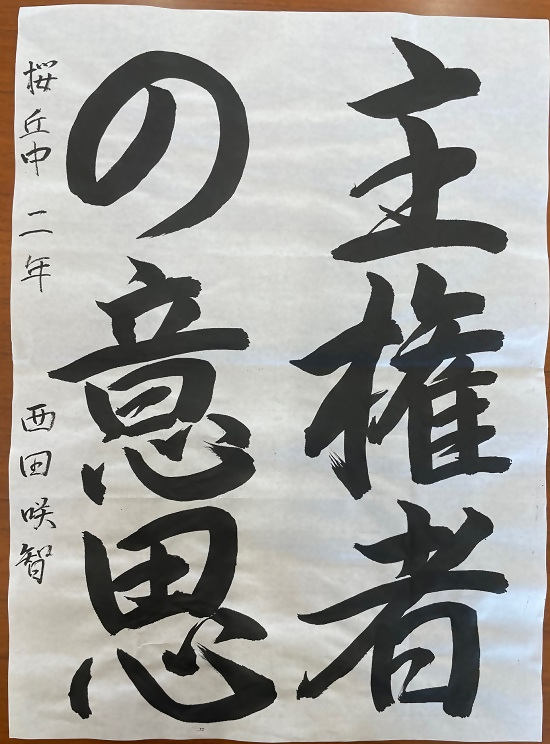 主権者
の意思
桜丘中 二年 西田咲智